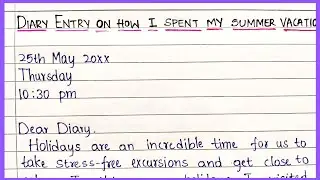 DIARY ENTRY ON HOW I SPENT MY SUMMER VACATIO
25th May 20xx
Thursday
10:30 pm
Dear Diary,
Holidays are an incredible time for us to
take stress-free excursions and get close to
holidays I visited